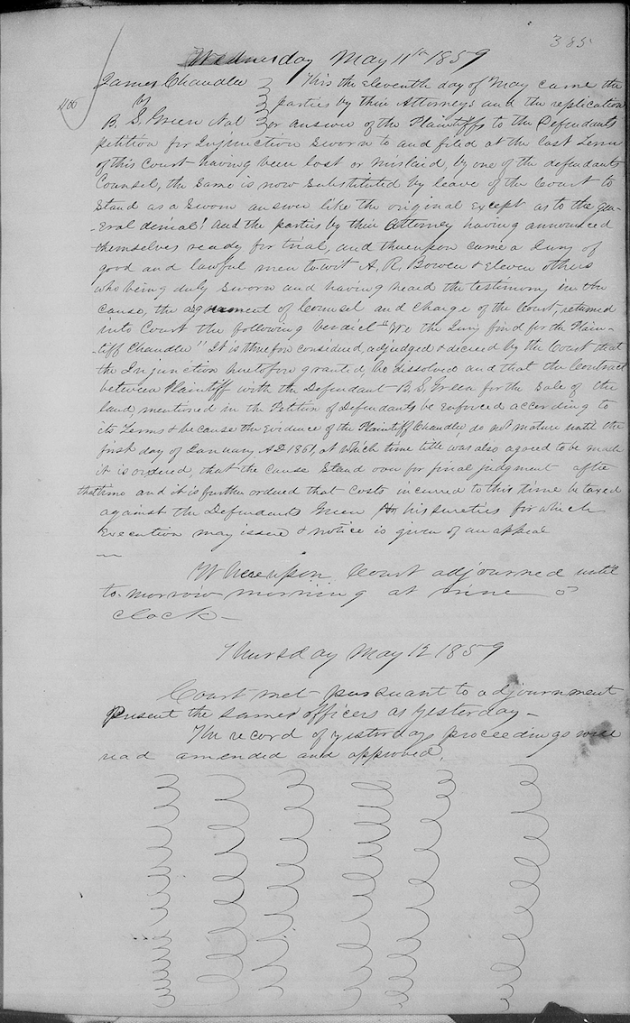 385
Wednesday May 11th 1859
James Chandler } This the Eleventh day of May came the
400 vs } parties by their Attorneys and the replication
B. S. Green et al } or answer of the Plaintiffs to the Defendants
petition for Injunction Sworn to and filed at the last Term
of this Court having been lost or mislaid, by one of the defendants
Counsel, the Same is now Substituted by leave of the Court to
Stand as a Sworn answer like the original Except as to the gen-
-eral denial! And the parties by their Attorney having announced
themselves ready for trial, and thereupon came a Jury of
good and lawful men to wit A. R. Bowen & Eleven others
who being duly Sworn and having heard the testimony in the
cause, the agreement of Counsel and Charge of the Court, returned
into Court the following Verdict "We the Jury find for the Plain-
-tiff Chandler" It is therefore considered, adjudged & decreed by the Court that
the Injunction heretofore granted, be dissolved and that the Contract
between Plaintiff with the Defendant B. S. Green for the Sale of the
land, mentioned in the Petition of Defendants be enforced according to
its Terms & because the Evidence of the Plaintiff Chandler, do not mature until the
first day of January AD 1861, at which time title was also agreed to be made
it is ordered, that the cause Stand over for final judgment after
that time and it is further ordered that Costs incurred to this time be taxed
against the Defendants Green & his sureties for which
Execution may issue & notice is given of an appeal
Whereupon Court adjourned until
to-morrow morning at nine o
clock-
Thursday May 12 1859
Court met pursuant to adjournment
Present the same officers as yesterday-
The record of yesterdays proceedings were
read amended and approved.